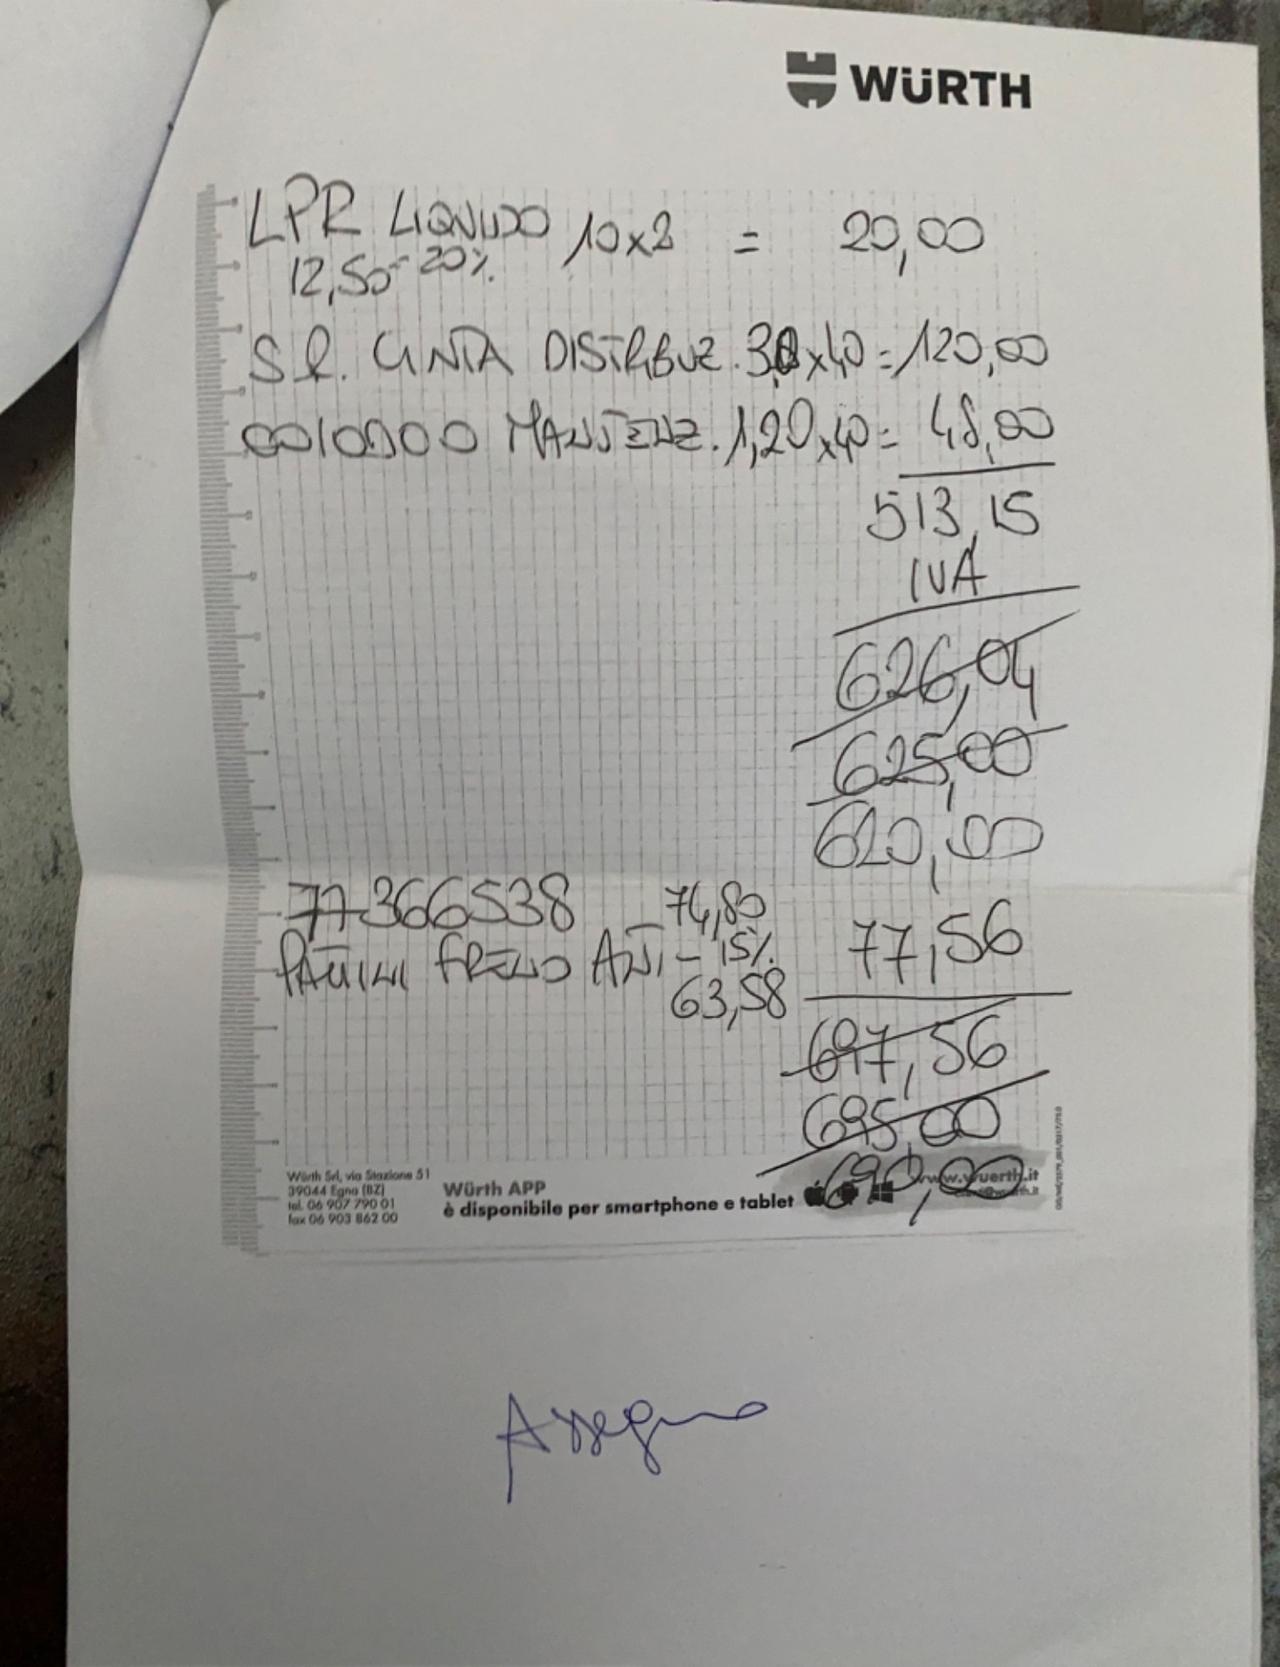 WÜRTH
LPR LIQUIDO 10x2 = 20,00
12,50 - 20%
S.R. CINTA DISTRIBUZ. 3,0x40 = 120,00
MANTENZ. 1,20x40 = 48,00
513,15
IVA
626,04
625,00
620,00
77366538 74,80
FRENO ANT - 15% 77,56
63,58
697,56
695,00
690,00
Würth Srl, via Stazione 51
39044 Egna (BZ)
tel. 06 907 790 01
fax 06 903 862 00
Würth APP
è disponibile per smartphone e tablet
www.wuerth.it
Assegno